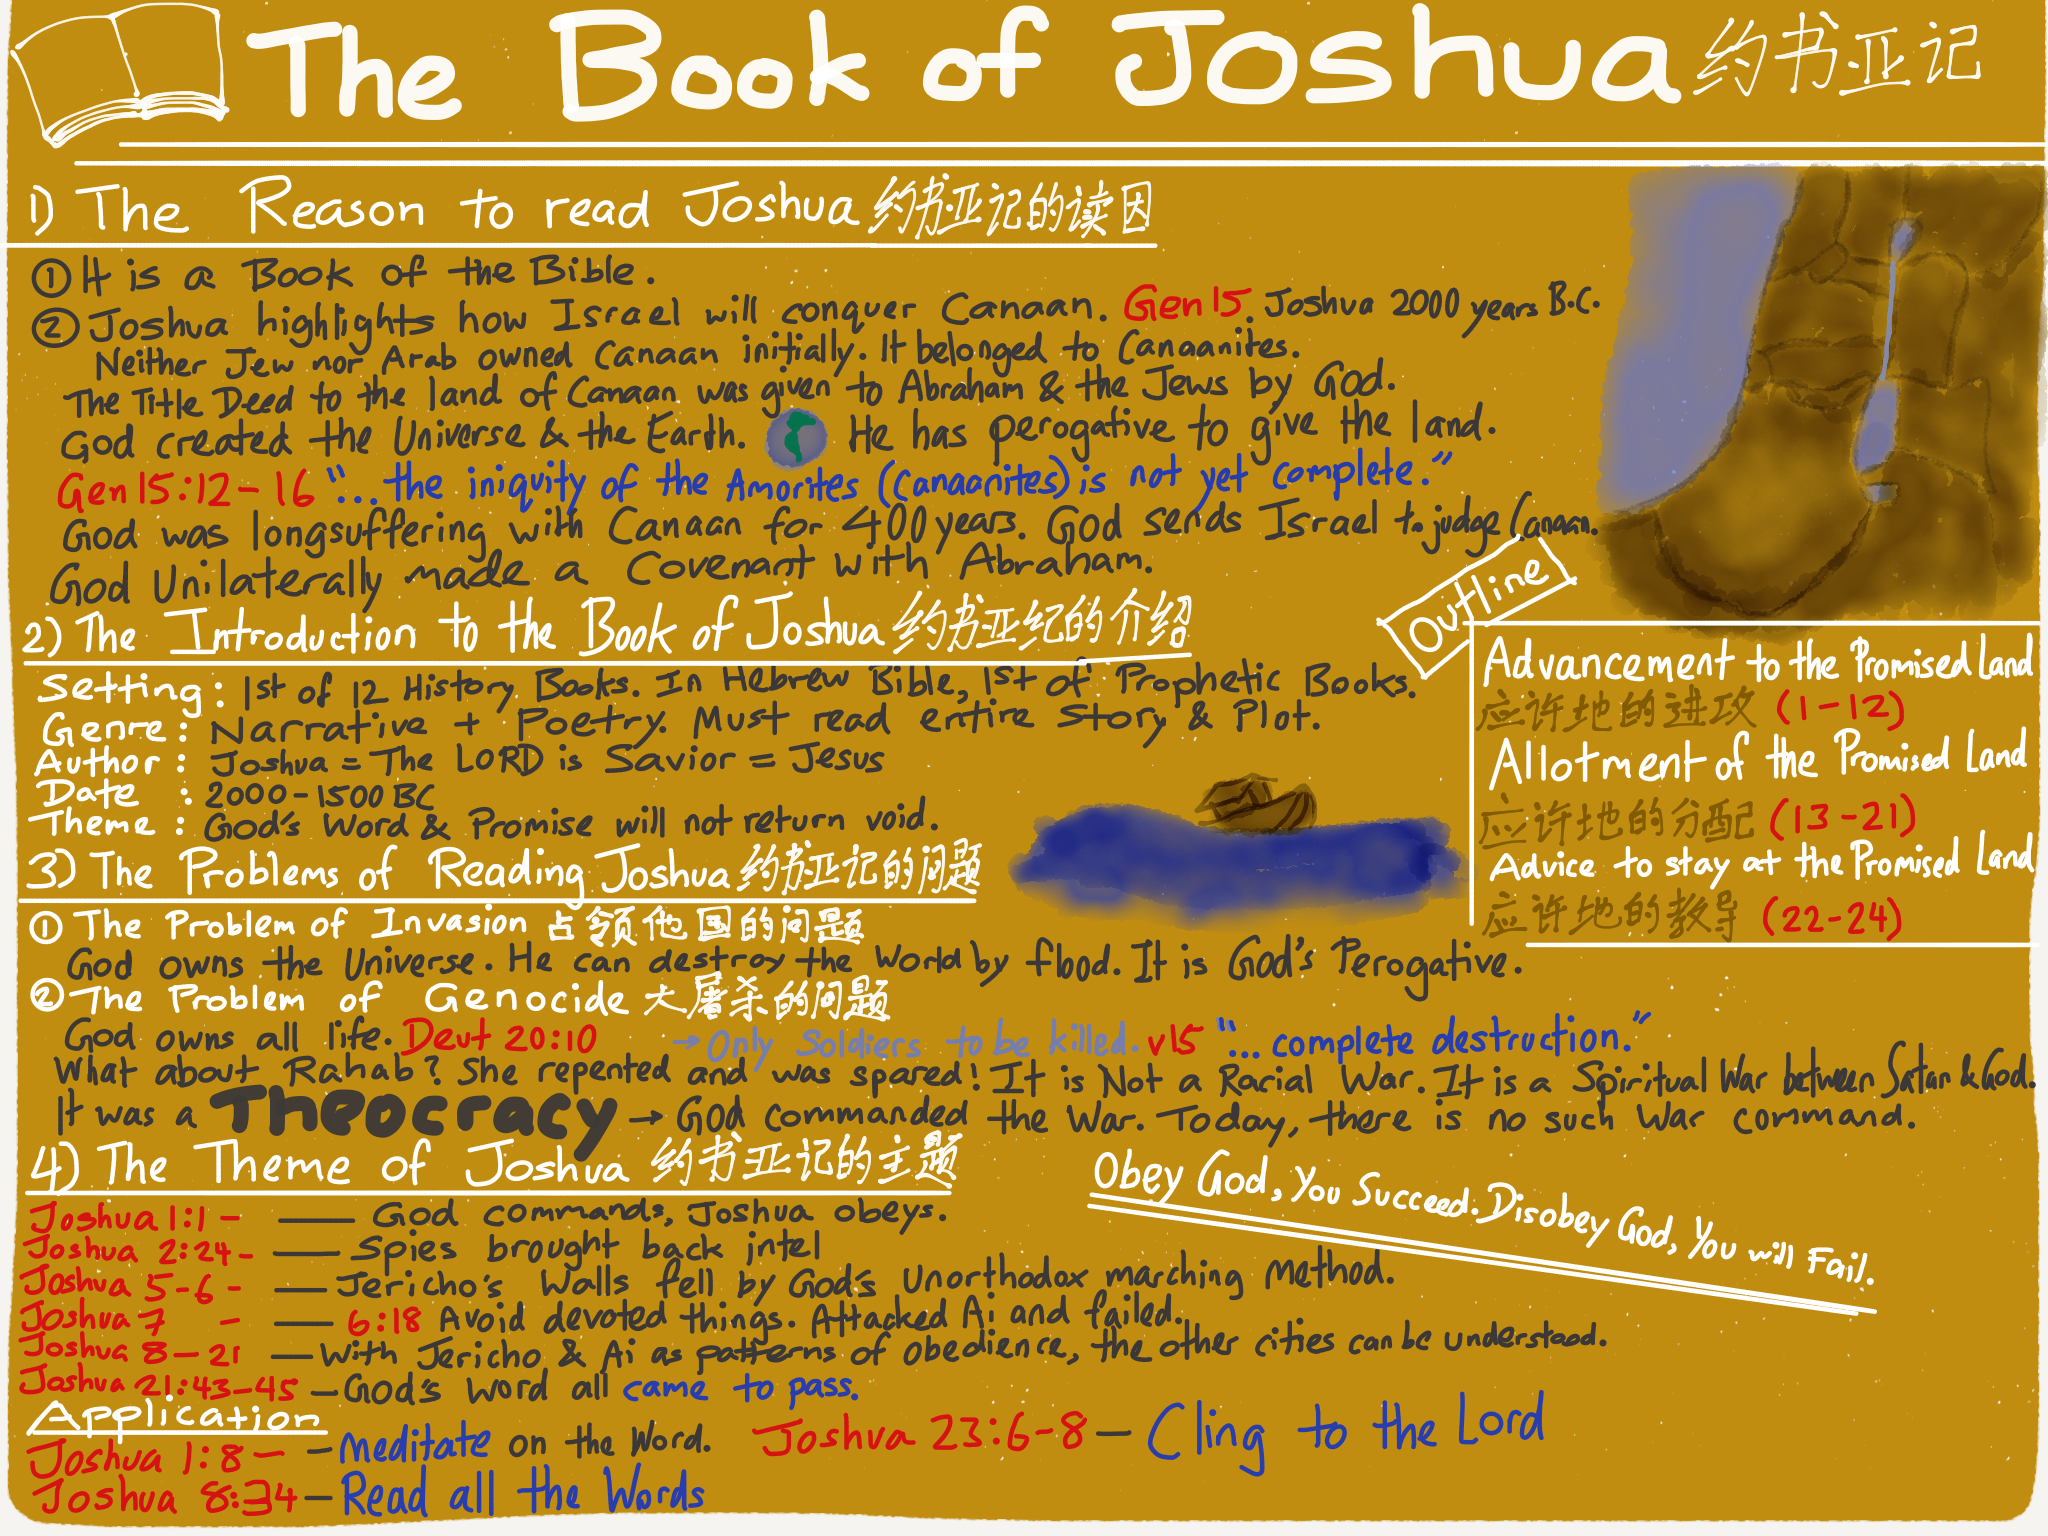 The Book of Joshua 约书亚记
1) The Reason to read Joshua 约书亚记的读因
① It is a Book of the Bible.
② Joshua highlights how Israel will conquer Canaan. Gen 15. Joshua 2000 years B.C.
Neither Jew nor Arab owned Canaan initially. It belonged to Canaanites.
The Title Deed to the land of Canaan was given to Abraham & the Jews by God.
God created the Universe & the Earth. He has perogative to give the land.
Gen 15:12-16 "...the iniquity of the Amorites (Canaanites) is not yet complete."
God was longsuffering with Canaan for 400 years. God sends Israel to judge Canaan.
God Unilaterally made a Covenant with Abraham.
2) The Introduction to the Book of Joshua 约书亚纪的介绍
Setting: 1st of 12 History Books. In Hebrew Bible, 1st of Prophetic Books.
Genre: Narrative + Poetry. Must read entire Story & Plot.
Author: Joshua = The LORD is Savior = Jesus
Date: 2000-1500 BC
Theme: God's Word & Promise will not return void.
Outline
Advancement to the Promised Land
应许地的进攻 (1-12)
Allotment of the Promised Land
应许地的分配 (13-21)
Advice to stay at the Promised Land
应许地的教导 (22-24)
3) The Problems of Reading Joshua 约书亚记的问题
① The Problem of Invasion 占领他国的问题
God owns the Universe. He can destroy the World by flood. It is God's Perogative.
② The Problem of Genocide 大屠杀的问题
God owns all life. Deut 20:10 → Only Soldiers to be killed. v15 "... complete destruction."
What about Rahab? She repented and was spared! It is Not a Racial War. It is a Spiritual War between Satan & God.
It was a Theocracy → God commanded the War. Today, there is no such War command.
4) The Theme of Joshua 约书亚记的主题
Obey God, You Succeed. Disobey God, You will Fail.
Joshua 1:1 - — God commands, Joshua obeys.
Joshua 2:24 - — Spies brought back intel
Joshua 5-6 - — Jericho's Walls fell by God's Unorthodox marching Method.
Joshua 7 - — 6:18 Avoid devoted things. Attacked Ai and failed.
Joshua 8-21 — With Jericho & Ai as patterns of obedience, the other cities can be understood.
Joshua 21:43-45 — God's Word all came to pass.
Application
Joshua 1:8 - — Meditate on the Word. Joshua 23:6-8 — Cling to the Lord
Joshua 8:34 — Read all the Words